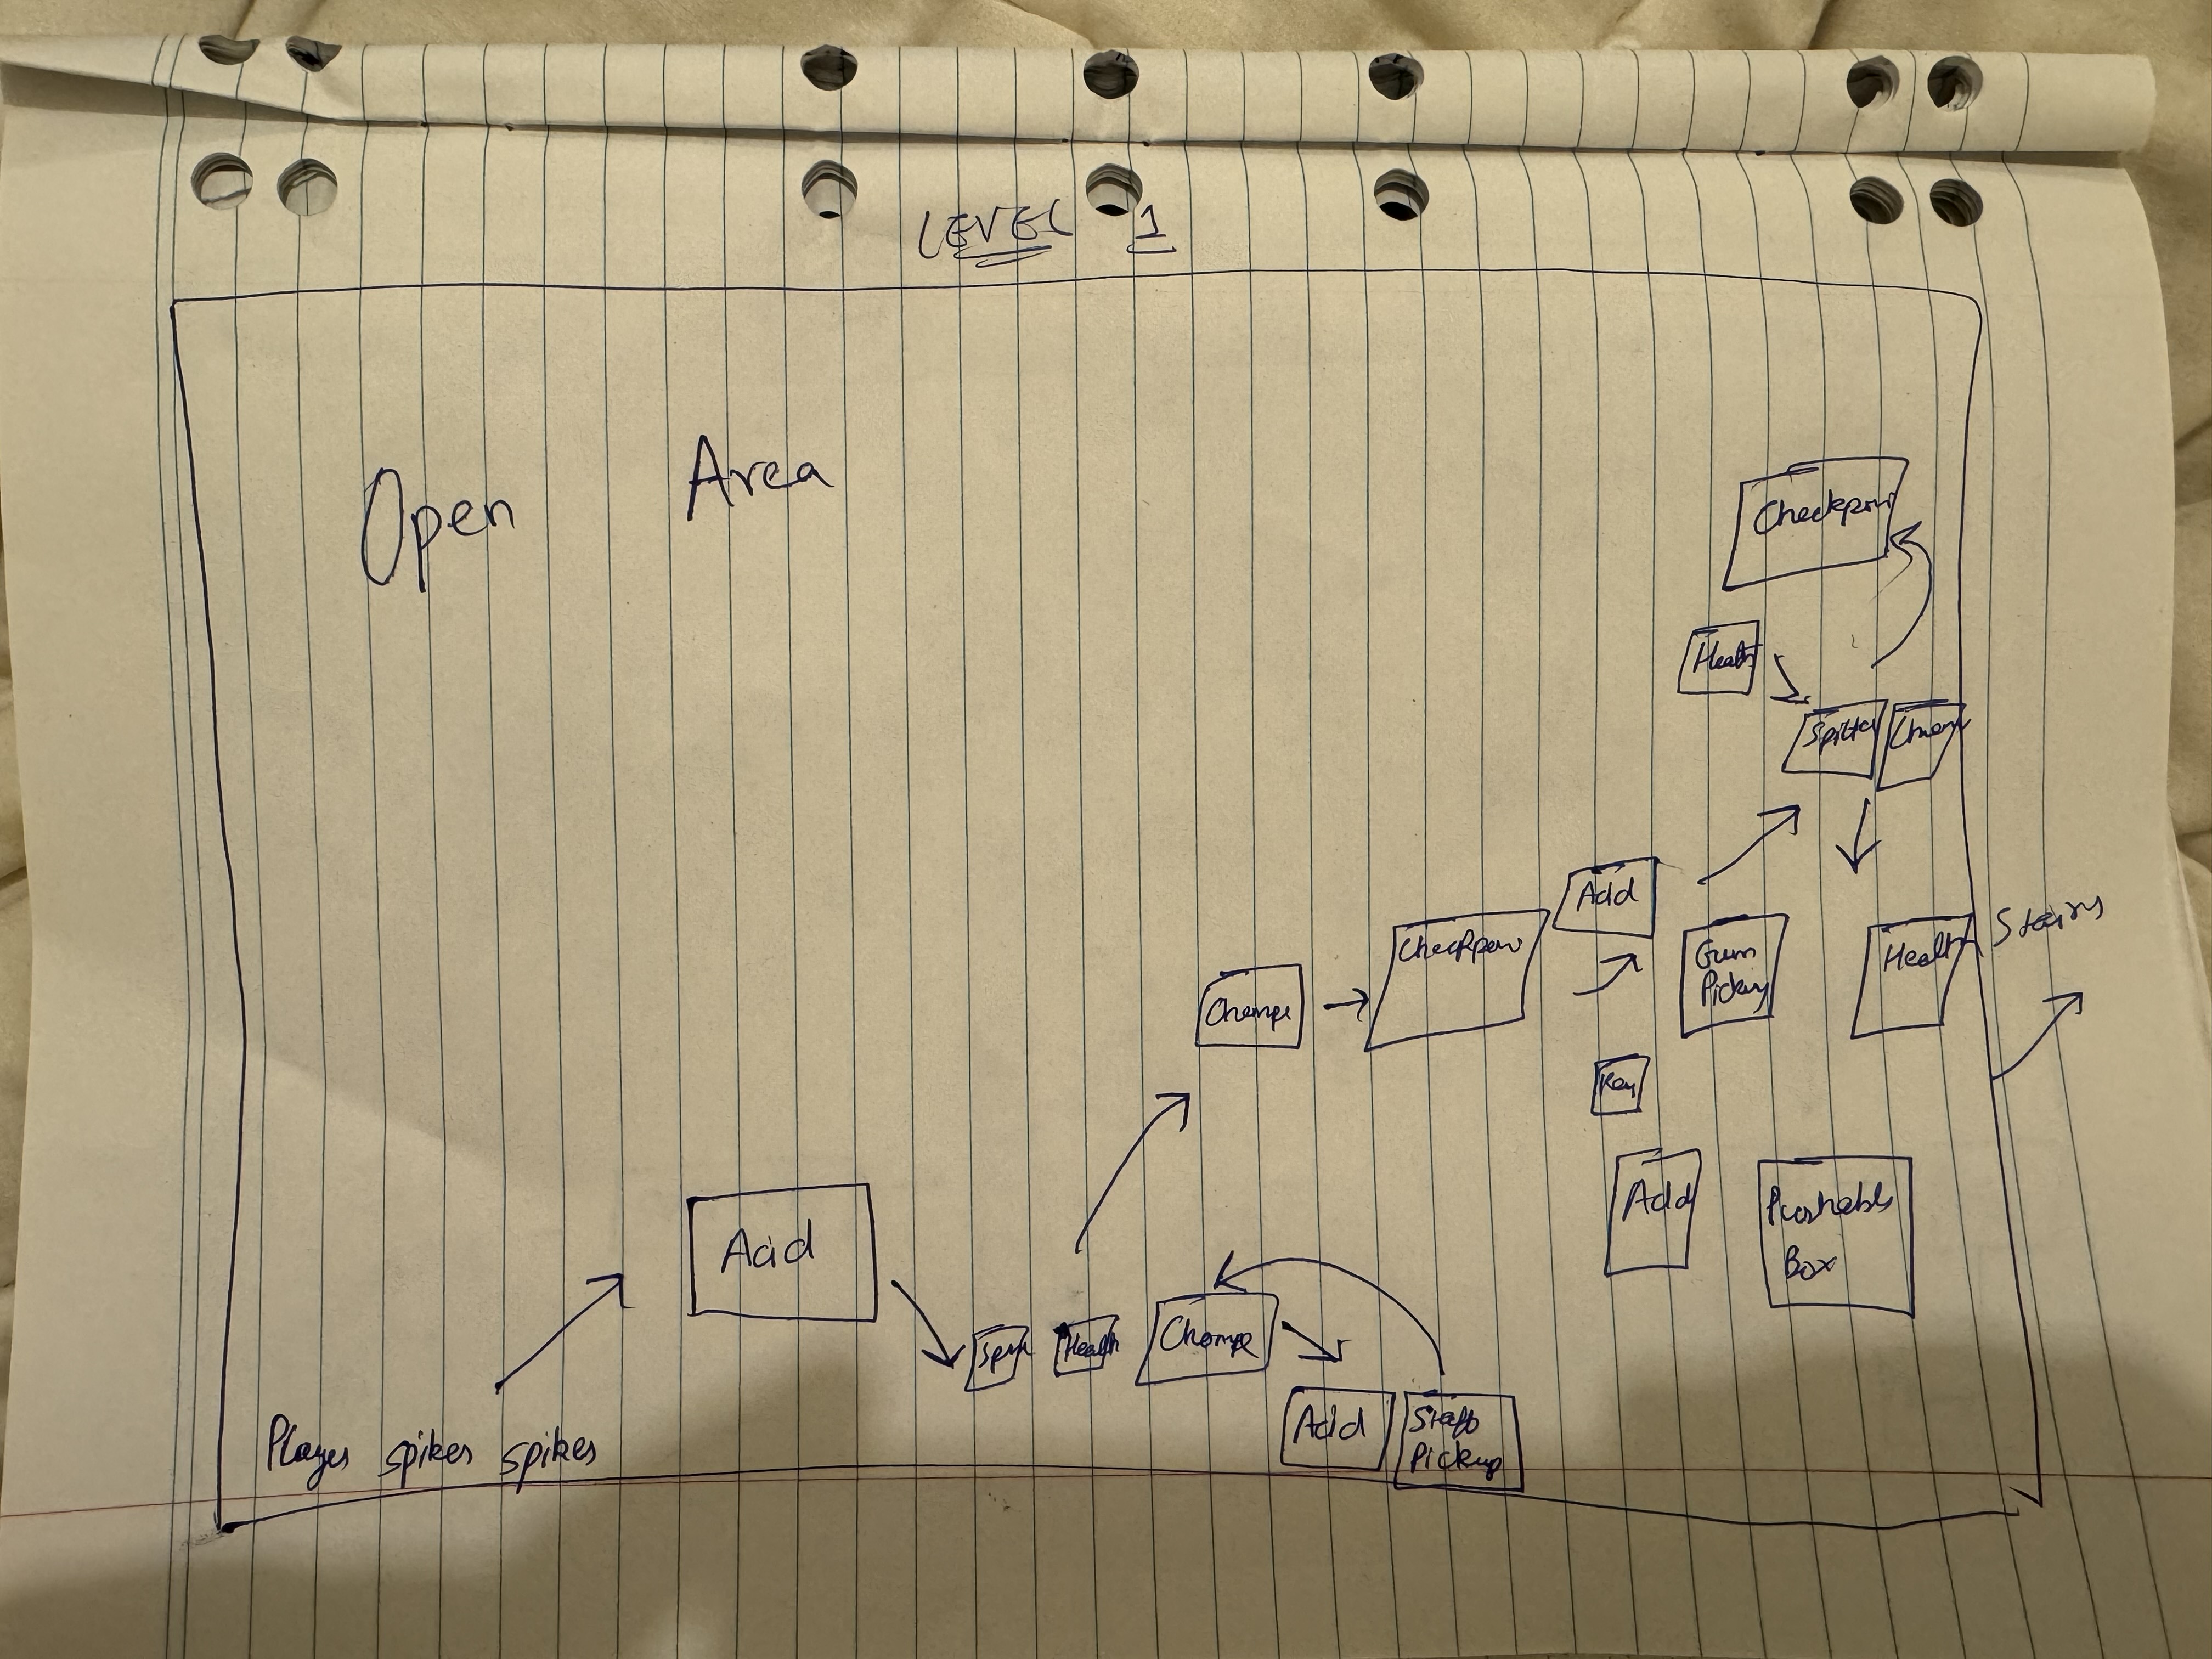 LEVEL 1
Open Area
Checkpoin
Health
Spitter
Chom
Acid
Checkpoin
Gun
Pickup
Health
Stairs
Chomper
Key
Acid
Pushable
Box
Acid
Health
Chomper
Acid
Staff
Pickup
Player spikes spikes